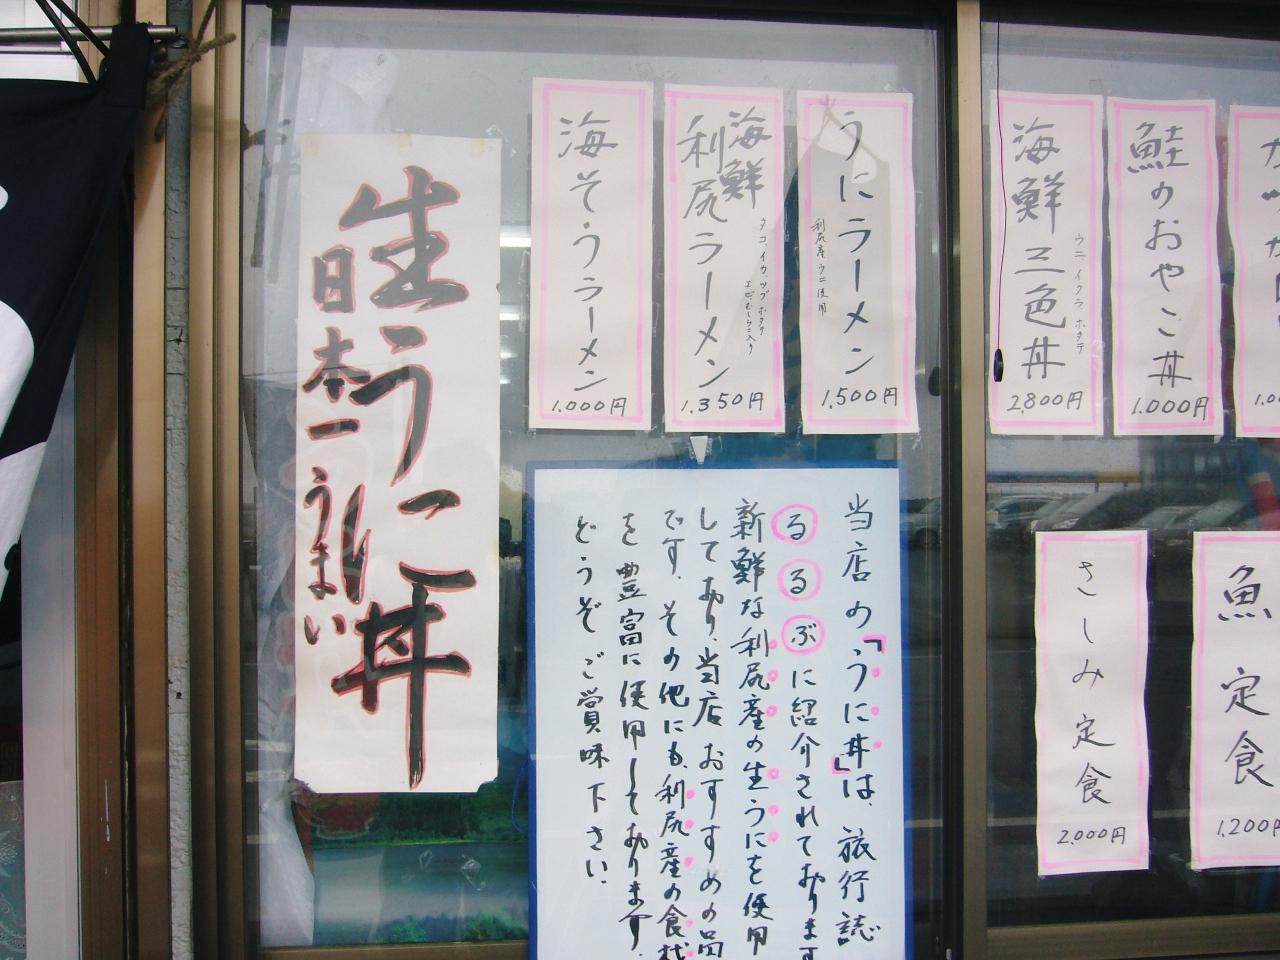 生うに丼
日本一うまい
海そうラーメン
1.000円
海鮮
利尻ラーメン
1.350円
うにラーメン
利尻産ウニ使用
1.500円
海鮮三色丼
ウニ、イクラ、ホタテ
2800円
鮭のおやこ丼
1.000円
当店の「うに丼」は、旅行誌
るるぶに紹介されております
新鮮な利尻産の生うにを使用
しており、当店おすすめの品
です。その他にも、利尻産の食材
を豊富に使用しております。
どうぞご賞味下さい。
さしみ定食
2.000円
魚定食
1.200円